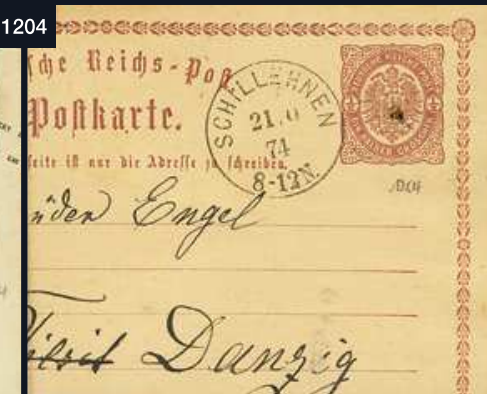 1204
sche Reichs-Post
Postkarte.
seite ist nur die Adresse zu schreiben.
SCHILLEHNEN
21. 0
74
8-12N.
üder Engel
Tilsit Danzig